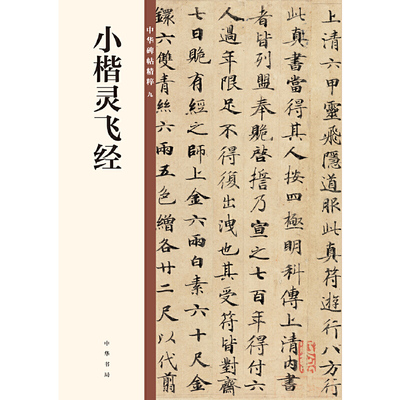 小楷灵飞经
中华碑帖精粹 九
中华书局
上清六甲靈飛隱道服此真符遊行八方
此真書當得其人按四極明科傳上清內書
者皆列盟奉賧啓誓乃宣之七百年得付六
過年限足不得復出洩也其受符皆對齋
七日賧有經之師上金六兩白素六十尺金
鐶六雙青絲六兩五色繒各廿二尺以代翦